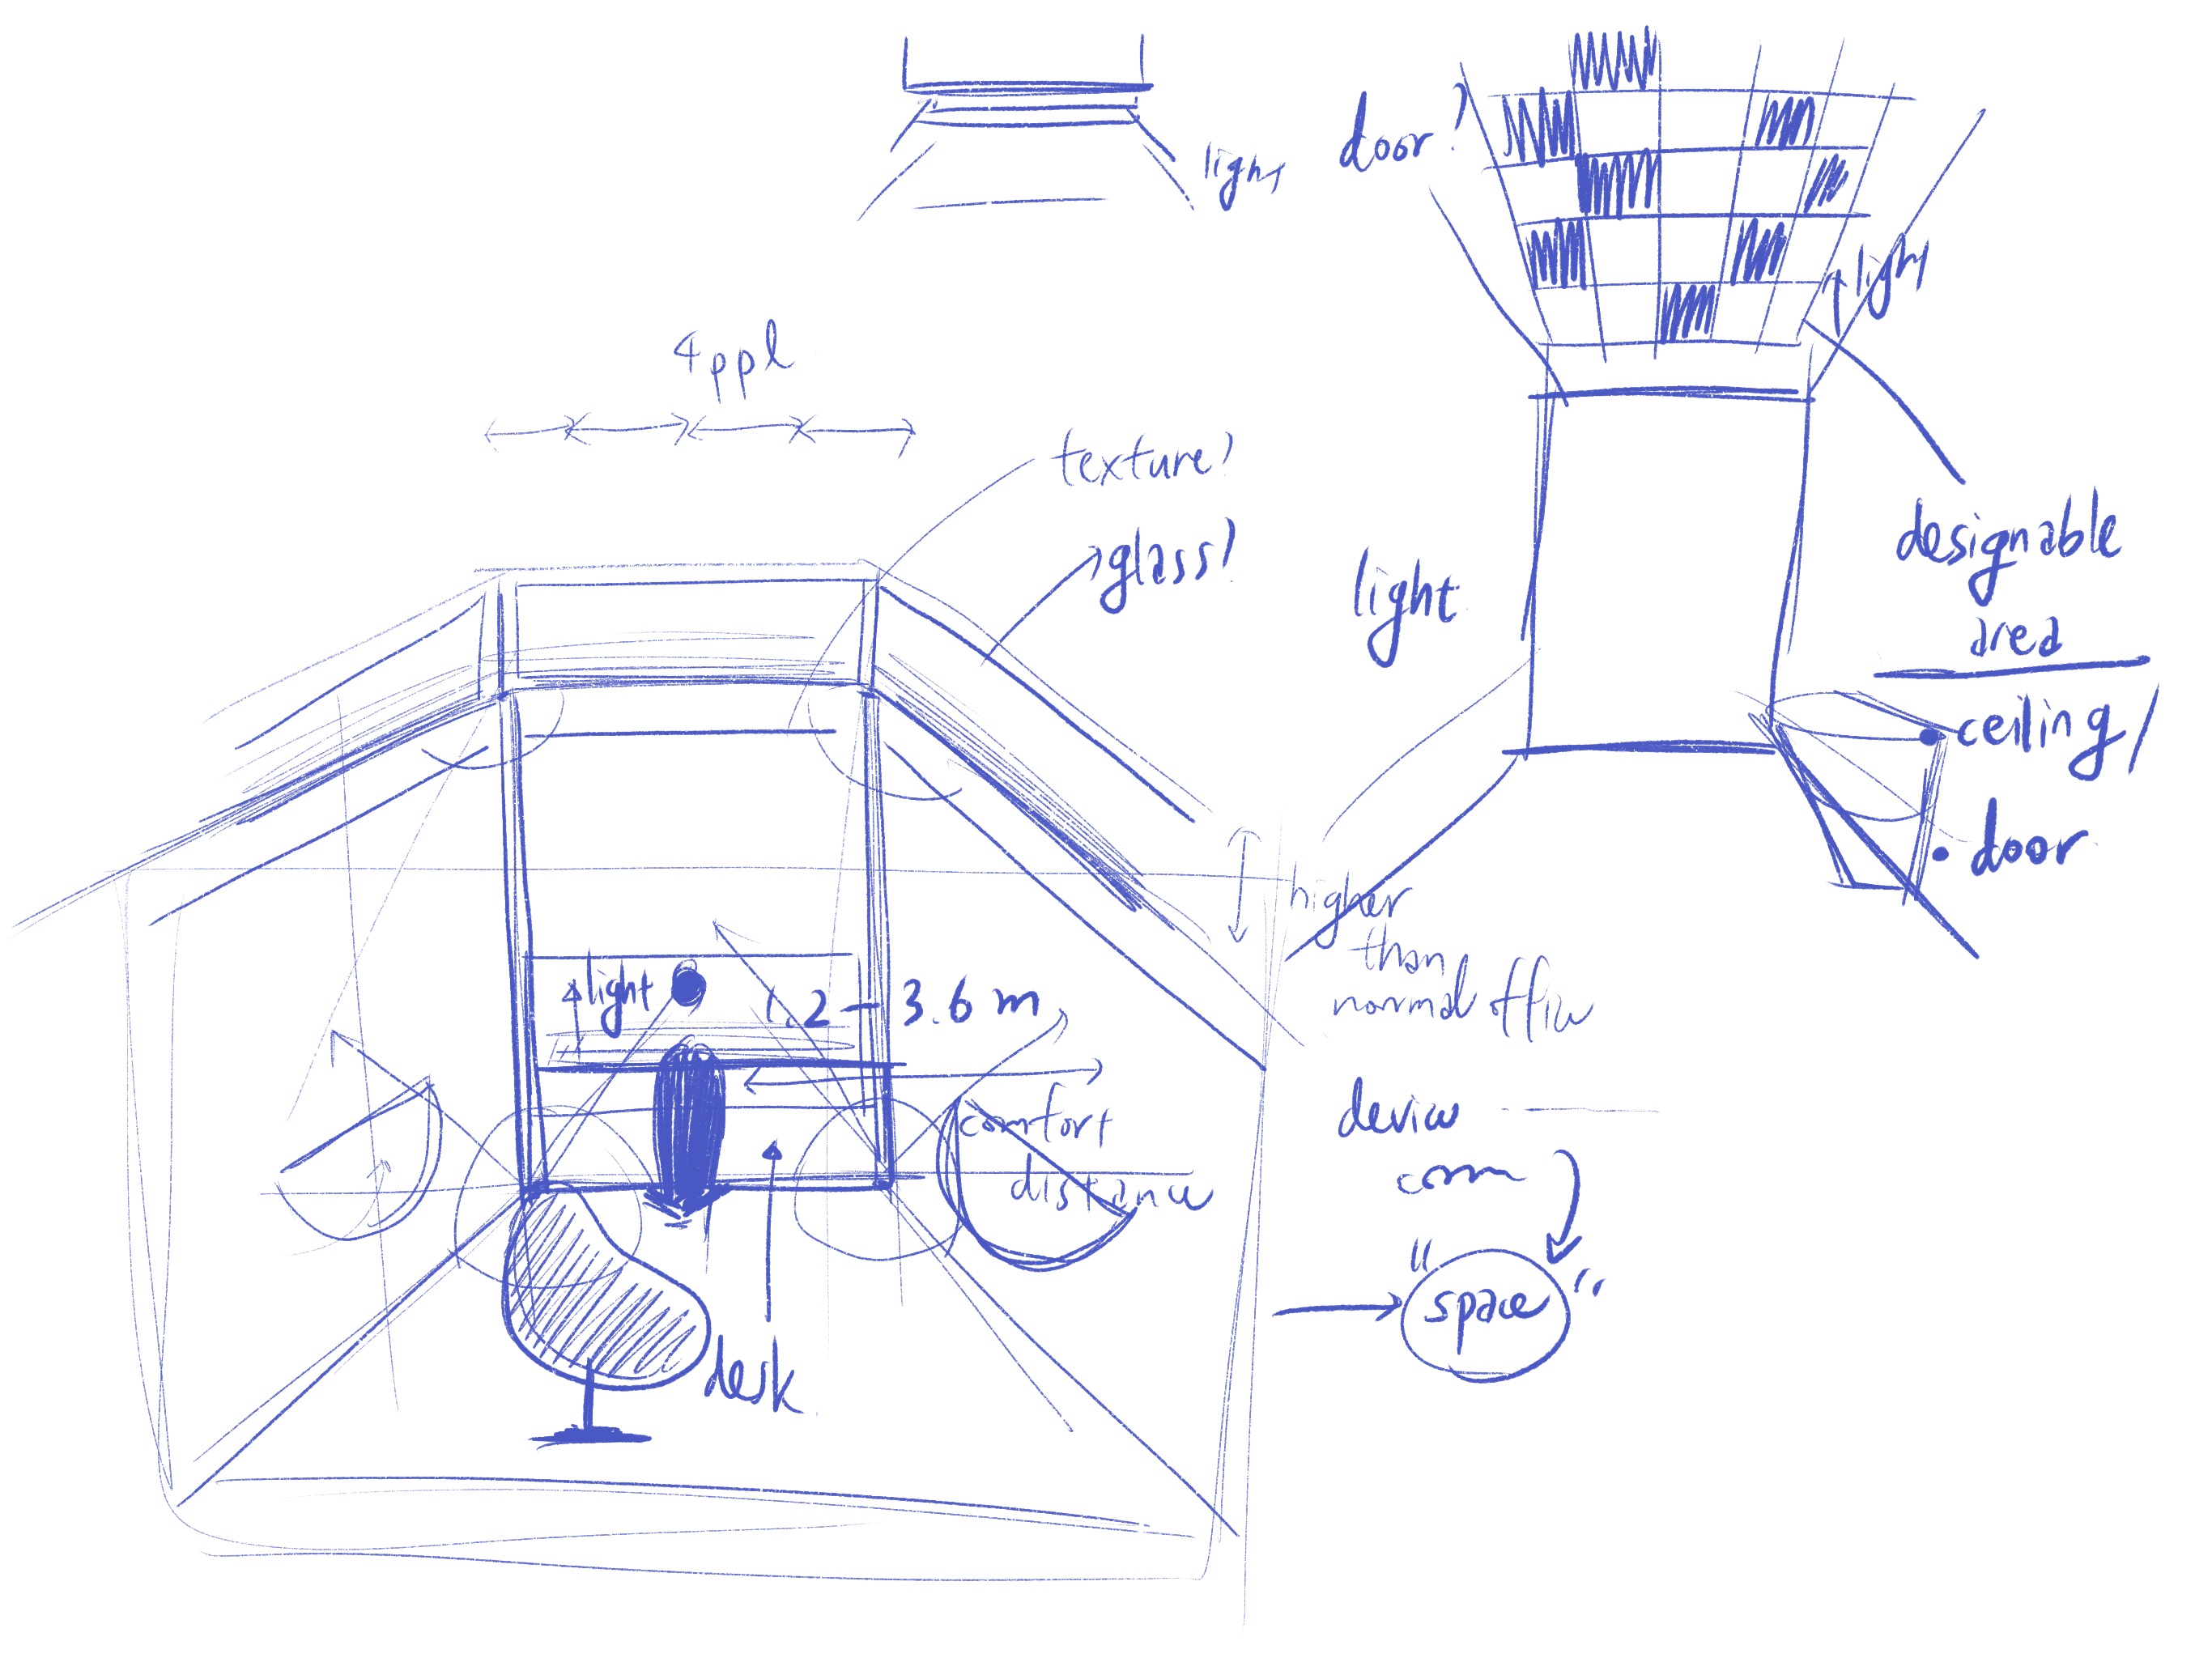 light
door?
light
4 ppl
texture?
glass?
light
designable
area
ceiling/
door
higher
than
normal office
light
1.2 - 3.6 m
comfort
distance
device
com
"space"
desk